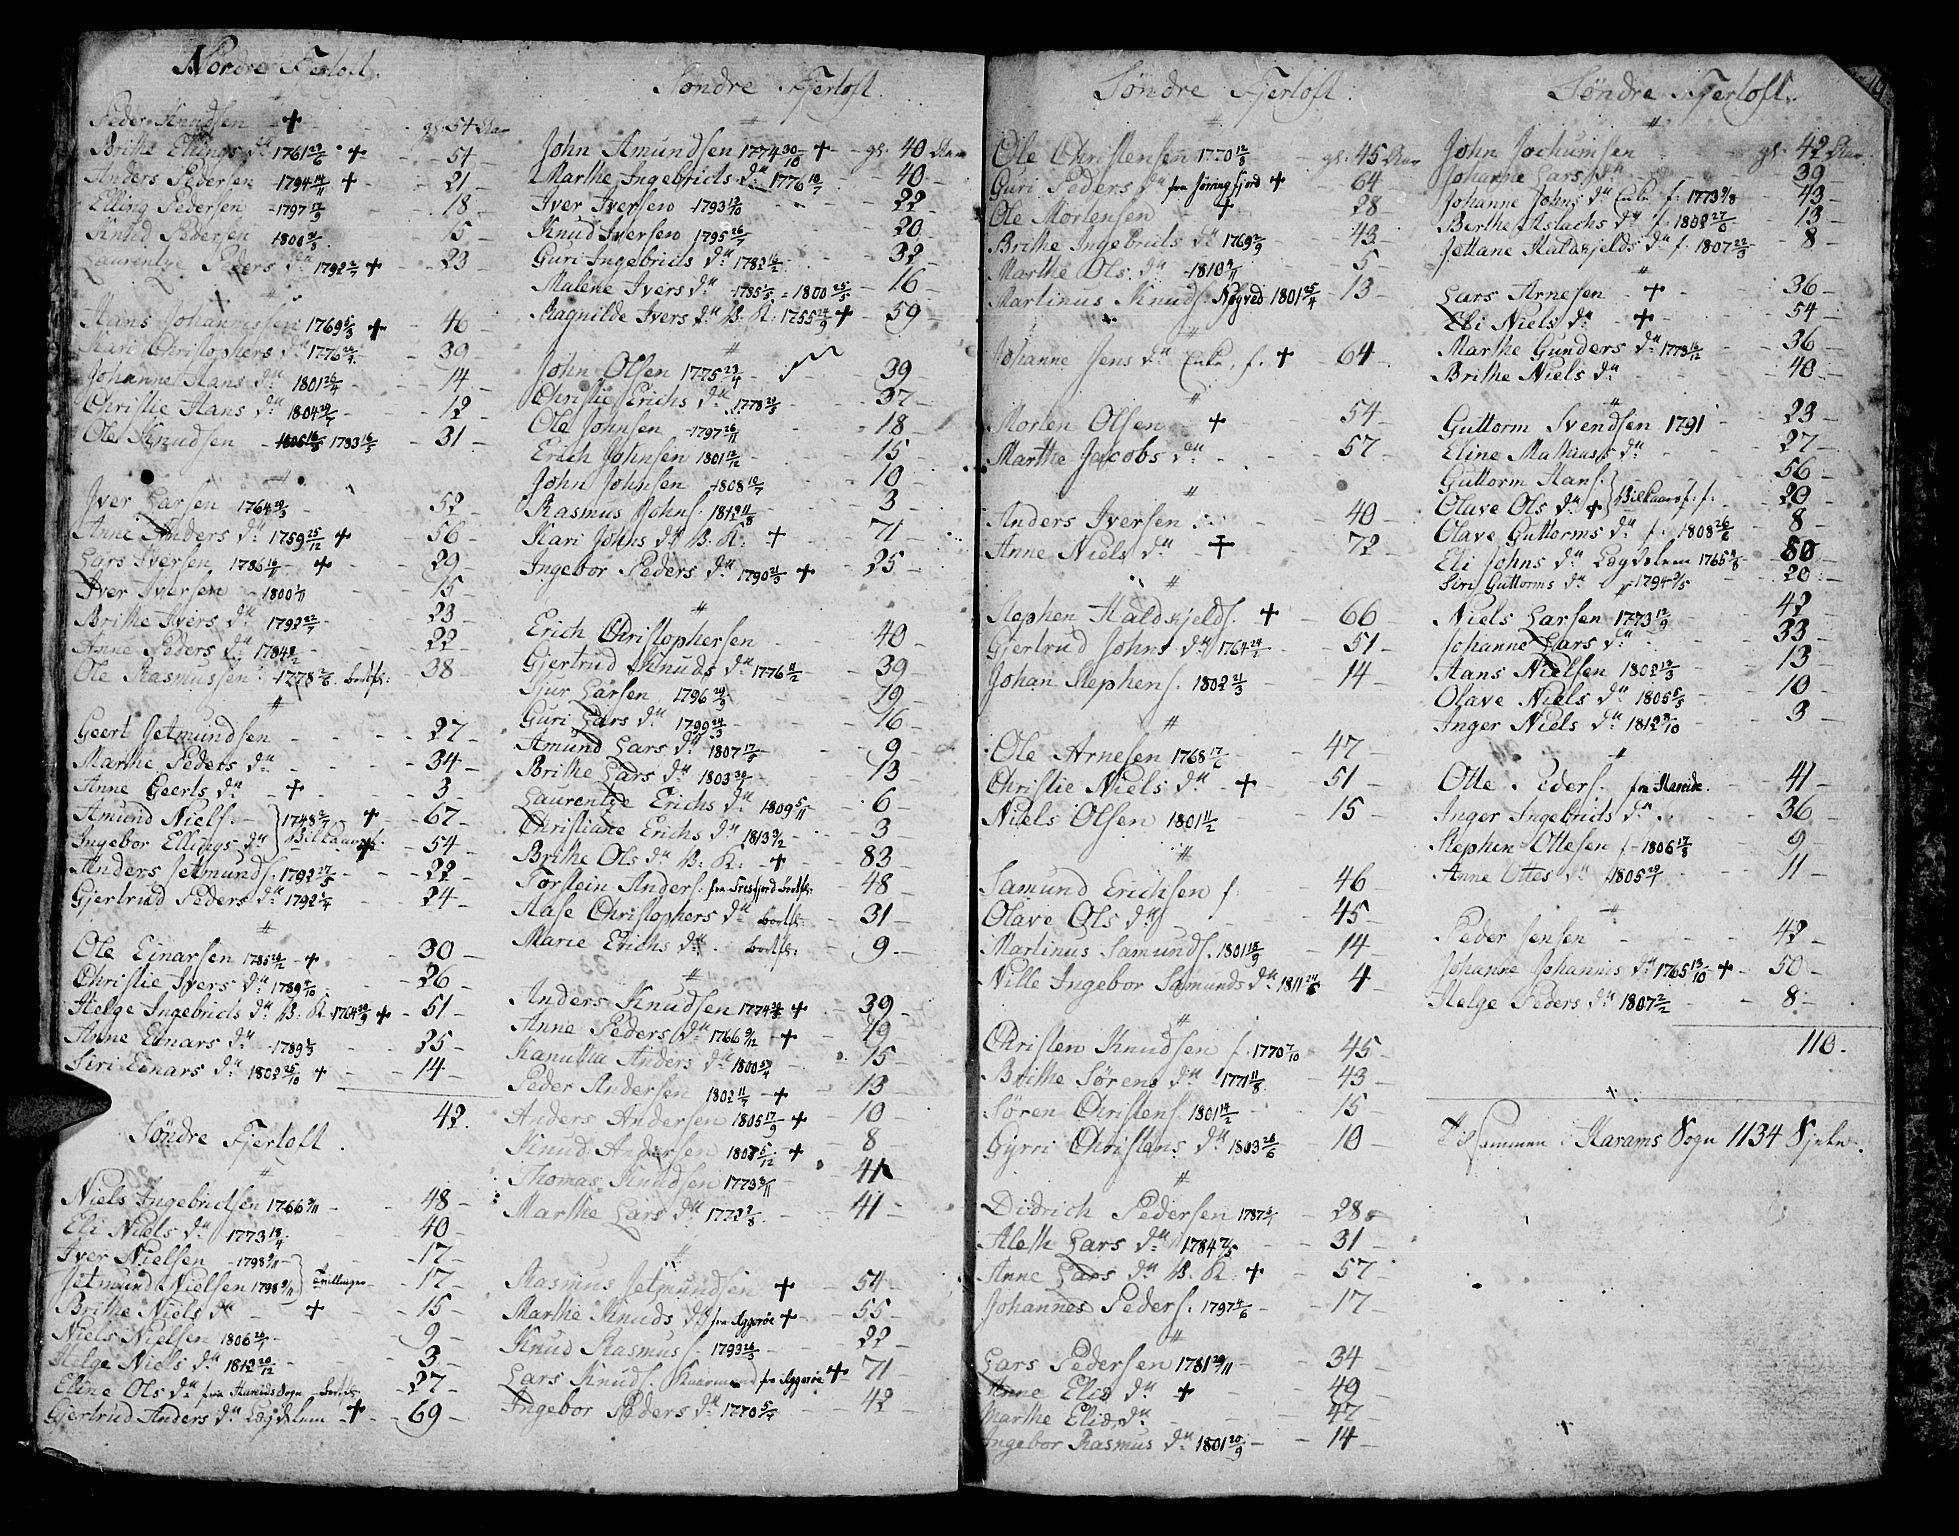 Nordre Fjerloft.
Peder Knudsen + gl. 54 Aar
Brithe Ellings d. 1761 23/6 + 51
Anders Pedersen 1794 14/11 + 21
Elling Pedersen 1797 17/9 18
Knud Pedersen 1800 21/3 15
Laurentze Peders d. 1792 2/7 + 23
#
Hans Johannessen 1769 5/3 + 46
Kari Christophers d. 1776 39
Johanne Hans d. 1801 26/4 14
Christie Hans d. 1804 29/7 12
Ole Knudsen 1783 16/5 31
#
Iver Larsen 1764 52
Anne Anders d. 1759 25/12 + 56
Lars Iversen 1786 16/11 + 29
Iver Iversen 1800 1/11 15
Brithe Ivers d. 1792 22/7 23
Anne Peders d. 1784 22
Ole Rasmussen 1778 bortfl: 38
#
Geert Jetmundsen 27
Marthe Peders d. 34
Anne Geerts d. + 3
Amund Niels. 1748 + 67
Ingebor Ellings d. Vilkaarsf. + 54
Anders Jetmunds. 1792 17/5 22
Gjertrud Peders d. 1792 24
#
Ole Einarsen 1785 + 30
Christie Ivers d. 1789 26
Helge Ingebrids d. B. K. 1764 + 51
Anne Einars d. 1789 25
Siri Einars d. 1802 25/10 + 14
42.
Søndre Fjerloft.
#
Niels Ingebridsen 1766 48
Eli Niels d. 1773 18/4 40
Iver Nielsen 1798 9/11 17
Jetmund Nielsen 1798 9/11 Tvillinger 17
Brithe Niels d. + 15
Niels Nielsen 1806 26/7 9
Helge Niels d. 1812 20/12 3
Eline Ols d. fra Hareids Sogn bortfl. 27
Gjertrud Anders d. Lægdelem + 69
Søndre Fjerloft.
#
John Amundsen 1774 30/10 + gl. 40 Aar
Marthe Ingebrids d. 1776 40
Iver Iversen 1793 13/10 22
Knud Iversen 1795 26/7 20
Guri Ingebrids d. 1782 32
Malene Ivers d. 1800 25/5 16
Magnilde Ivers d. B. K. 1755 + 59
#
John Olsen 1775 23/4 39
Christie Erichs d. 1778 37
Ole Johnsen 1797 26/11 18
Erich Johnsen 1801 12/12 15
John Johnsen 1808 10/7 10
Rasmus Johns. 1812 11/8 3
Kari Johns d. B. K. + 71
Ingebor Peders d. 1790 21/3 + 25
#
Erich Christophersen 40
Gjertrud Knuds d. 1776 11/2 39
Sjur Larsen 1796 29/9 19
Guri Lars d. 1799 24/3 16
Amund Lars d. 1807 17/5 9
Brithe Lars d. 1803 13
Laurentze Erichs d. 1809 5/11 6
Christiane Erichs d. 1813 9/2 3
Brithe Ols d. B. K. + 83
Torstein Anders. fra Tresfjord bortfl: 48
Aase Christophers d. bortfl. 31
Marie Erichs d. bortfl. 9
#
Anders Knudsen 1774 + 39
Anne Peders d. 1766 9/12 + 49
Kanutta Anders d. 1800 15
Peder Andersen 1802 11/7 + 13
Anders Andersen 1805 17/9 + 10
Knud Andersen 1807 5/12 + 8
Thomas Knudsen 1773 41
Marthe Lars d. 1772 2/8 41
#
Rasmus Jetmundsen + 54
Marthe Knuds d. fra Aggerøe + 55
Knud Rasmus. 1793 26/3 22
Lars Knuds. fra Aggerøe + 71
Ingebor Peders d. 1770 5/7 42
Søndre Fjerloft.
#
Ole Christensen 1770 12/8 gl. 45 Aar
Guri Peders d. fra + 64
Ole Mortensen + 28
Brithe Ingebrids d. 1769 2/9 43
Marthe Ols d. 1810 5
Martinus Knuds. 1801 25/4 13
#
Johanne Jens d. Enke, f. + 64
#
Morten Olsen + 54
Marthe Jacobs d. 57
#
Anders Iversen 40
Anne Niels d. + 72
#
Stephen Haldkjelds. + 66
Gjertrud Johns d. 1764 51
Johan Stephens. 1802 21/3 14
#
Ole Arnesen 1768 17/6 47
Christie Niels d. + 51
Niels Olsen 1801 11/2 15
#
Samund Erichsen f. 46
Olave Ols d. 45
Martinus Samunds. 1801 15/9 14
Nille Ingebor Samunds d. 1811 24/6 4
#
Christen Knudsen f. 1770 7/10 45
Brithe Sørens d. 1771 11/8 43
Søren Christens. 1801 14/2 15
Gyrri Christens d. 1803 26/6 10
#
Didrich Pedersen 1787 28
Aleth Lars d. 1784 7/5 31
Anne Lars d. B. K. + 57
Johannes Peders. 1797 4/6 17
#
Lars Pedersen 1781 34
Anne Eliæ d. + 49
Marthe Eliæ d. 47
Ingebor Rasmus d. 1801 20/9 14
Søndre Fjerloft.
#
John Jochumsen gl. 42 Aar
Johanne Lars d. 39
Johanne Johns d. Enke f. 1773 9/8 43
Berthe Aslachs d. f. 1802 27/6 13
Jettane Haldkjelds d. f. 1807 22/3 8
#
Lars Arnesen + 36
Eli Niels d. + 54
Marthe Gunders d. 1778 16/12 36
Brithe Niels d. 40
#
Guttorm Svendsen 1791 23
Eline Mathias d. 27
Guttorm Hans. 56
Olave Ols d. + Vilkaarsf: f. 20
Olave Guttorms d. f. 1808 26/6 8
Eli Johns d. Lægdelem 1765 50
Siri Guttorms d. f. 1794 20
Niels Larsen 1773 12/9 42
Johanne Lars d. 33
Hans Nielsen 1802 13
Olave Niels d. 1805 5/5 10
Inger Niels d. 1812 3
#
Otte Peders. fra Hareide. 41
Inger Ingebrids d. 36
Stephen Ottesen f. 1806 17/8 9
Anne Ottes d. 1805 11
#
Peder Jensen 42
Johanne Johannis d. 1765 13/10 + 50
Helge Peders d. 1807 2/2 8
110.
Tilsammen i Harams Sogn 1134 Sjæle.